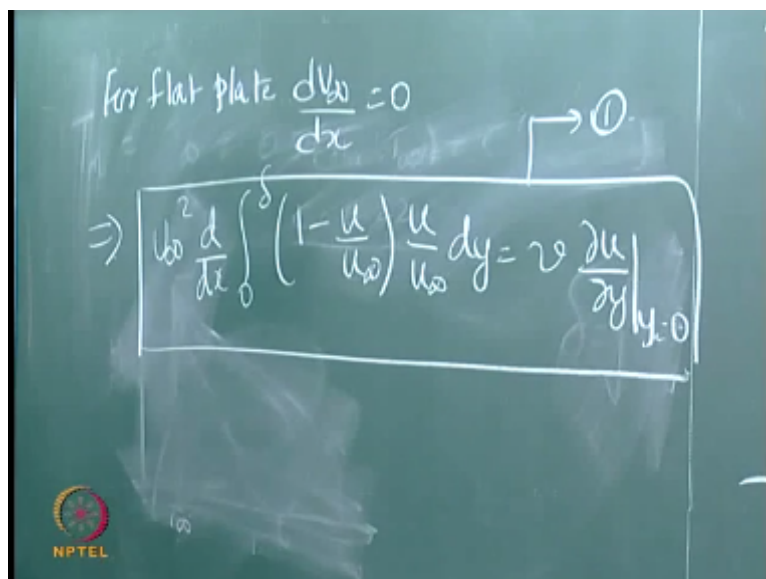 For flat plate dU∞/dx = 0
→ ①
⇒ U∞² d/dx ∫₀^δ (1 - u/u∞) u/u∞ dy = ν ∂u/∂y|y=0
∞
NPTEL